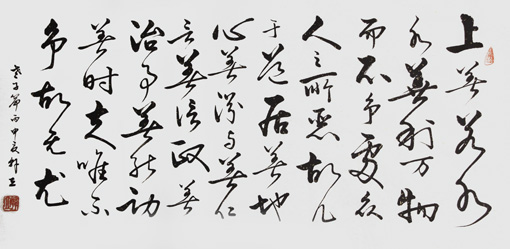 上善若水
水善利万物
而不争處众
人之所恶故几
于道居善地
心善渊与善仁
言善信政善
治事善能动
善时夫唯不
争故无尤
老子篇丙申夏